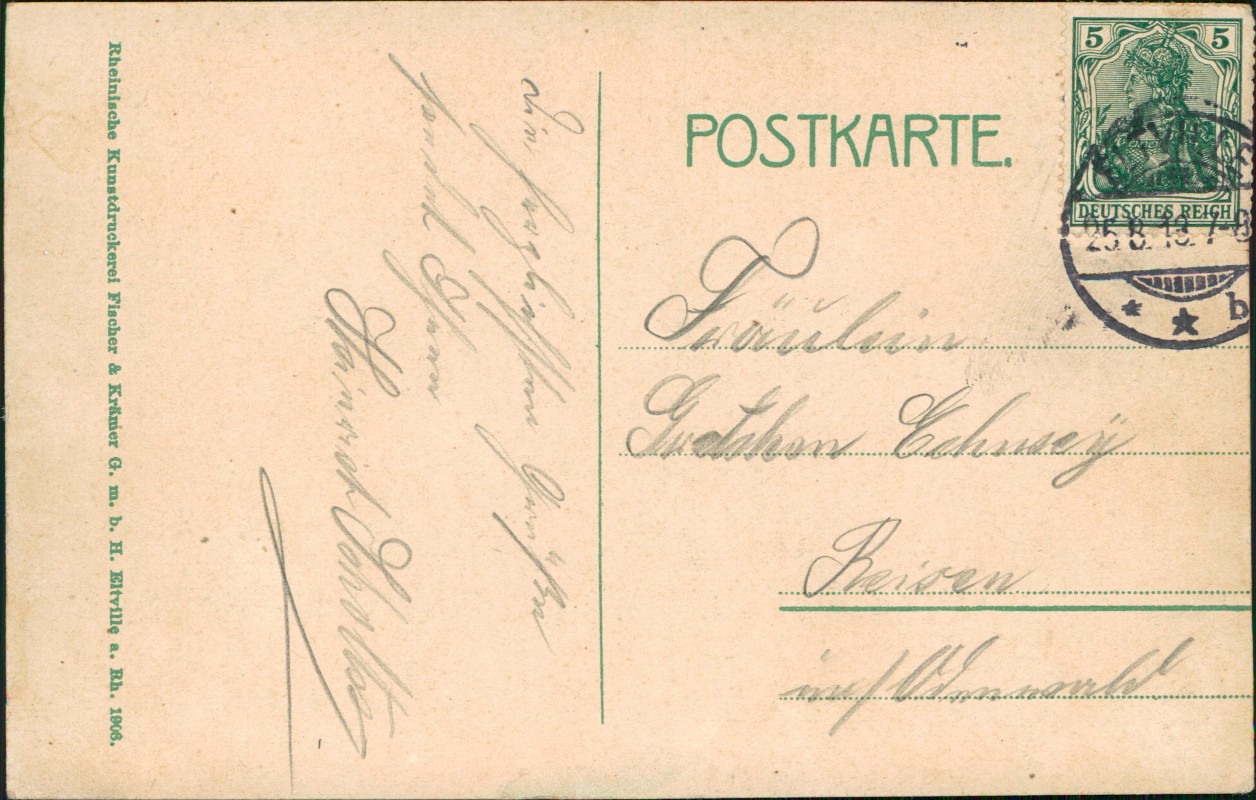 Die herzlichsten Grüßen
sendet Ihnen
Heinrich
POSTKARTE.
5 5
DEUTSCHES REICH
25.8.13. 7-8
* * b
Fräulein
Gretchen
Reisen
im/Odenwald
Rheinische Kunstdruckerei Fischer & Krämer G. m. b. H. Eltville a. Rh. 1906.